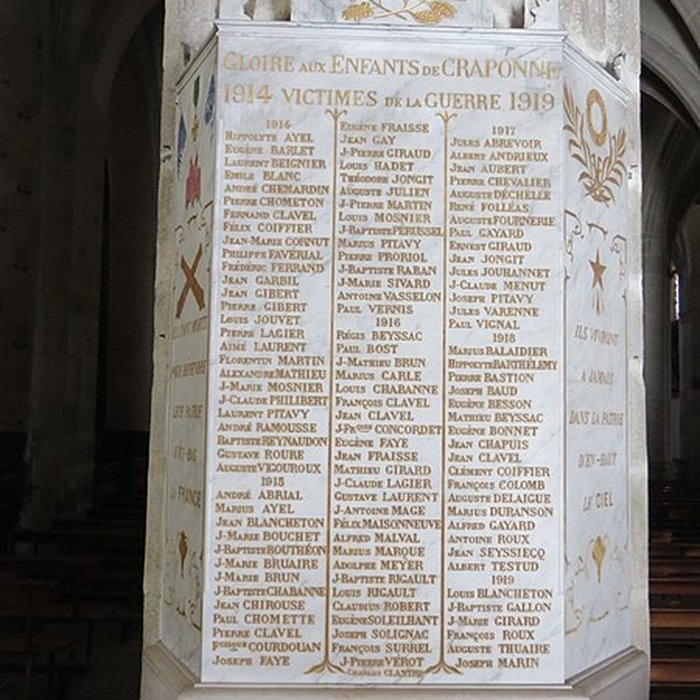 GLOIRE AUX ENFANTS DE CRAPONNE
1914 VICTIMES DE LA GUERRE 1919
1914
HIPPOLYTE AYEL
EUGÈNE BARLET
LAURENT BEIGNIER
EMILE BLANC
ANDRÉ CHEMARDIN
PIERRE CHOMETON
FERNAND CLAVEL
FÉLIX COIFFIER
JEAN-MARIE CORNUT
PHILIPPE FAVÉRIAL
FRÉDÉRIC FERRAND
JEAN GARBIL
JEAN GIBERT
PIERRE GIBERT
LOUIS JOUVET
PIERRE LAGIER
AIMÉ LAURENT
FLORENTIN MARTIN
ALEXANDRE MATHIEU
J-MARIE MOSNIER
J-CLAUDE PHILIBERT
LAURENT PITAVY
ANDRÉ RAMOUSSE
BAPTISTE REYNAUDON
GUSTAVE ROURE
AUGUSTE VIGOUROUX
1915
ANDRÉ ABRIAL
MARIUS AYEL
JEAN BLANCHETON
J-MARIE BOUCHET
J-BAPTISTE BOUTHÉON
J-MARIE BRUAIRE
J-MARIE BRUN
J-BAPTISTE CHABANNE
JEAN CHIROUSE
PAUL CHOMETTE
PIERRE CLAVEL
COURDOUAN
JOSEPH FAYE
EUGÈNE FRAISSE
JEAN GAY
J-PIERRE GIRAUD
LOUIS HADET
THÉODORE JONGIT
AUGUSTE JULIEN
J-PIERRE MARTIN
LOUIS MOSNIER
J-BAPTISTE PÉRUSSEL
MARIUS PITAVY
PIERRE PRORIOL
J-BAPTISTE RABAN
J-MARIE SIVARD
ANTOINE VASSELON
PAUL VERNIS
1916
RÉGIS BEYSSAC
PAUL BOST
J-MATHIEU BRUN
MARIUS CARLE
LOUIS CHABANNE
FRANÇOIS CLAVEL
JEAN CLAVEL
J-FRANÇOIS CONCORDET
EUGÈNE FAYE
JEAN FRAISSE
MATHIEU GIRARD
J-CLAUDE LAGIER
GUSTAVE LAURENT
J-ANTOINE MAGE
FÉLIX MAISONNEUVE
ALFRED MALVAL
MARIUS MARQUE
ADOLPHE MEYER
J-BAPTISTE RIGAULT
LOUIS RIGAULT
CLAUDIUS ROBERT
EUGÈNE SOLEILHANT
JOSEPH SOLIGNAC
FRANÇOIS SURREL
J-PIERRE VÉROT
CHARLES CLASTRE
1917
JULES ABREVOIR
ALBERT ANDRIEUX
JEAN AUBERT
PIERRE CHEVALIER
AUGUSTE DÉCHELLE
RENÉ FOLLÉAS
AUGUSTE FOURNERIE
PAUL GAYARD
ERNEST GIRAUD
JEAN JONGIT
JULES JOUHANNET
J-CLAUDE MENUT
JOSEPH PITAVY
JULES VARENNE
PAUL VIGNAL
1918
MARIUS BALAIDIER
HIPPOLYTE BARTHÉLEMY
PIERRE BASTION
JOSEPH BAUD
EUGÈNE BESSON
MATHIEU BEYSSAC
EUGÈNE BONNET
JEAN CHAPUIS
JEAN CLAVEL
CLÉMENT COIFFIER
FRANÇOIS COLOMB
AUGUSTE DELAIGUE
MARIUS DURANSON
ALFRED GAYARD
ANTOINE ROUX
JEAN SEYSSIECQ
ALBERT TESTUD
1919
LOUIS BLANCHETON
J-BAPTISTE GALLON
J-MARIE GIRARD
FRANÇOIS ROUX
AUGUSTE THUAIRE
JOSEPH MARIN
ILS SONT MORTS
POUR DEFENDRE
LEUR PATRIE
D'ICI-BAS
LA FRANCE
ILS VIVRONT
A JAMAIS
DANS LA PATRIE
D'EN-HAUT
LE CIEL